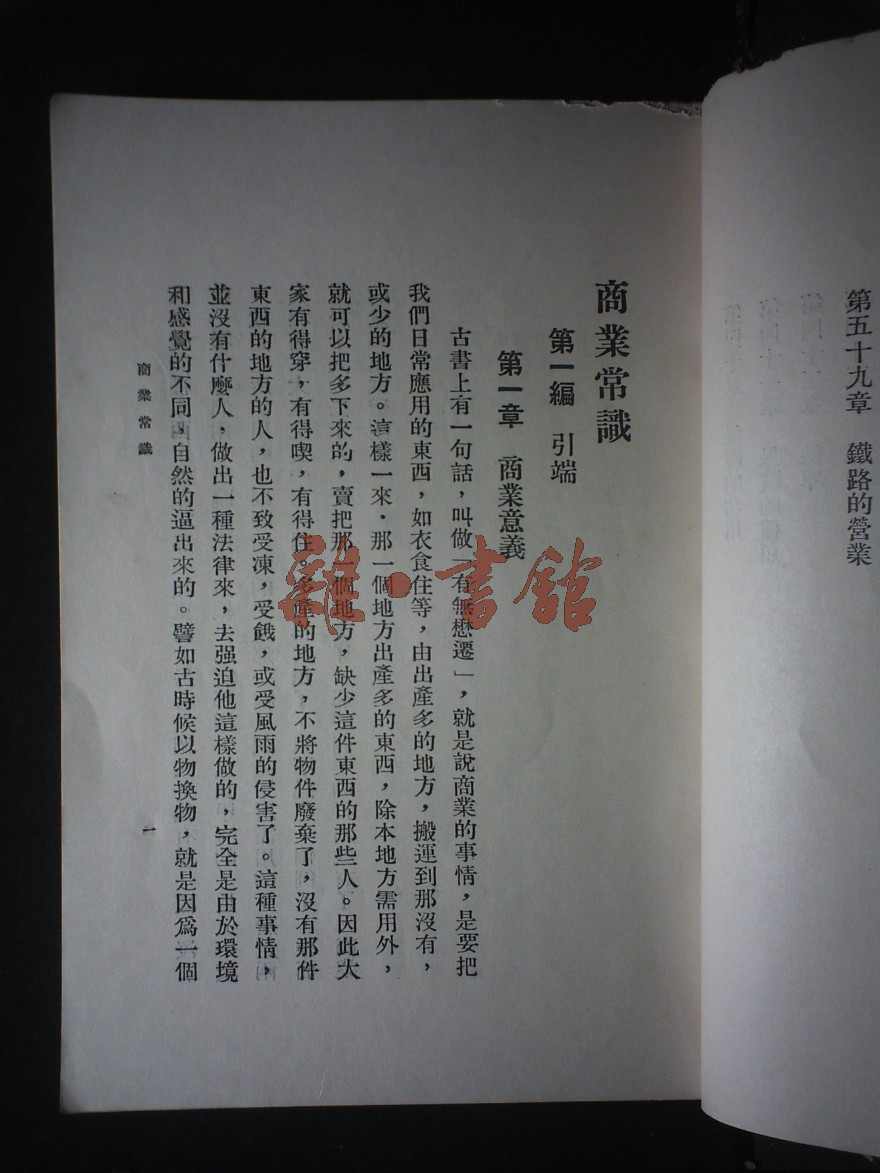 第五十九章　鐵路的營業
商業常識
第一編　引端
第一章　商業意義
古書上有一句話，叫做「有無懋遷」，就是說商業的事情，是要把
我們日常應用的東西，如衣食住等，由出產多的地方，搬運到那沒有，
或少的地方。這樣一來．那一個地方出產多的東西，除本地方需用外，
就可以把多下來的，賣把那一個地方，缺少這件東西的那些人。因此大
家有得穿，有得喫，有得住。多產的地方，不將物件廢棄了，沒有那件
東西的地方的人，也不致受凍，受餓，或受風雨的侵害了。這種事情，
並沒有什麼人，做出一種法律來，去强迫他這樣做的，完全是由於環境
和感覺的不同，自然的逼出來的。譬如古時候以物換物，就是因爲一個
商業常識
一
雜·書館